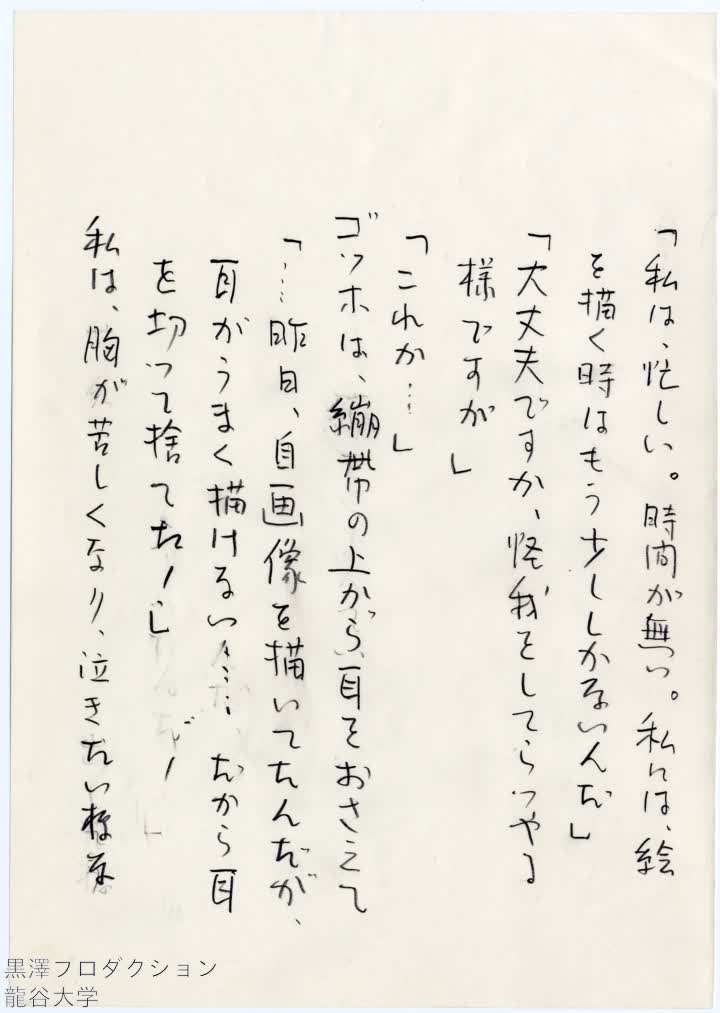 「私は、忙しい。時間が無い。私には、絵
を描く時はもう少ししかないんだ」
「大丈夫ですか、怪我をしてらつやる
様ですが」
「これか…」
ゴッホは、繃帯の上から耳をおさえて
「…昨日、自画像を描いてたんだが、
耳がうまく描けない……だから耳
を切って捨てた！」
私は、胸が苦しくなり、泣きたい様な
黒澤プロダクション
龍谷大学